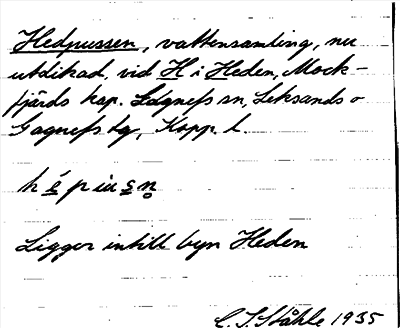 Hedpussen, vattensamling, nu
utdikad, vid H i Heden, Mock-
fjärds kap. Gagnefs sn, Leksands o
Gagnefs tg, Kopp. l.
h é̱ p ɯ s̱ n̥
Ligger intill byn Heden
C. I. Ståhle 1935